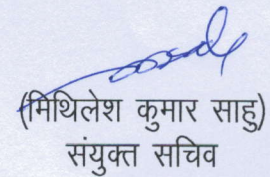 (मिथिलेश कुमार साहु)
संयुक्त सचिव